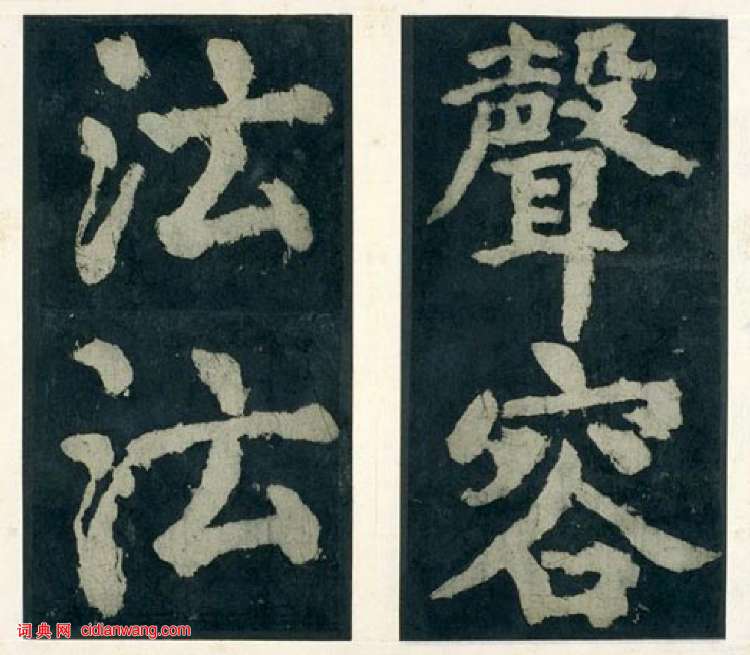 聲容
法法
词典网 cidianwang.com